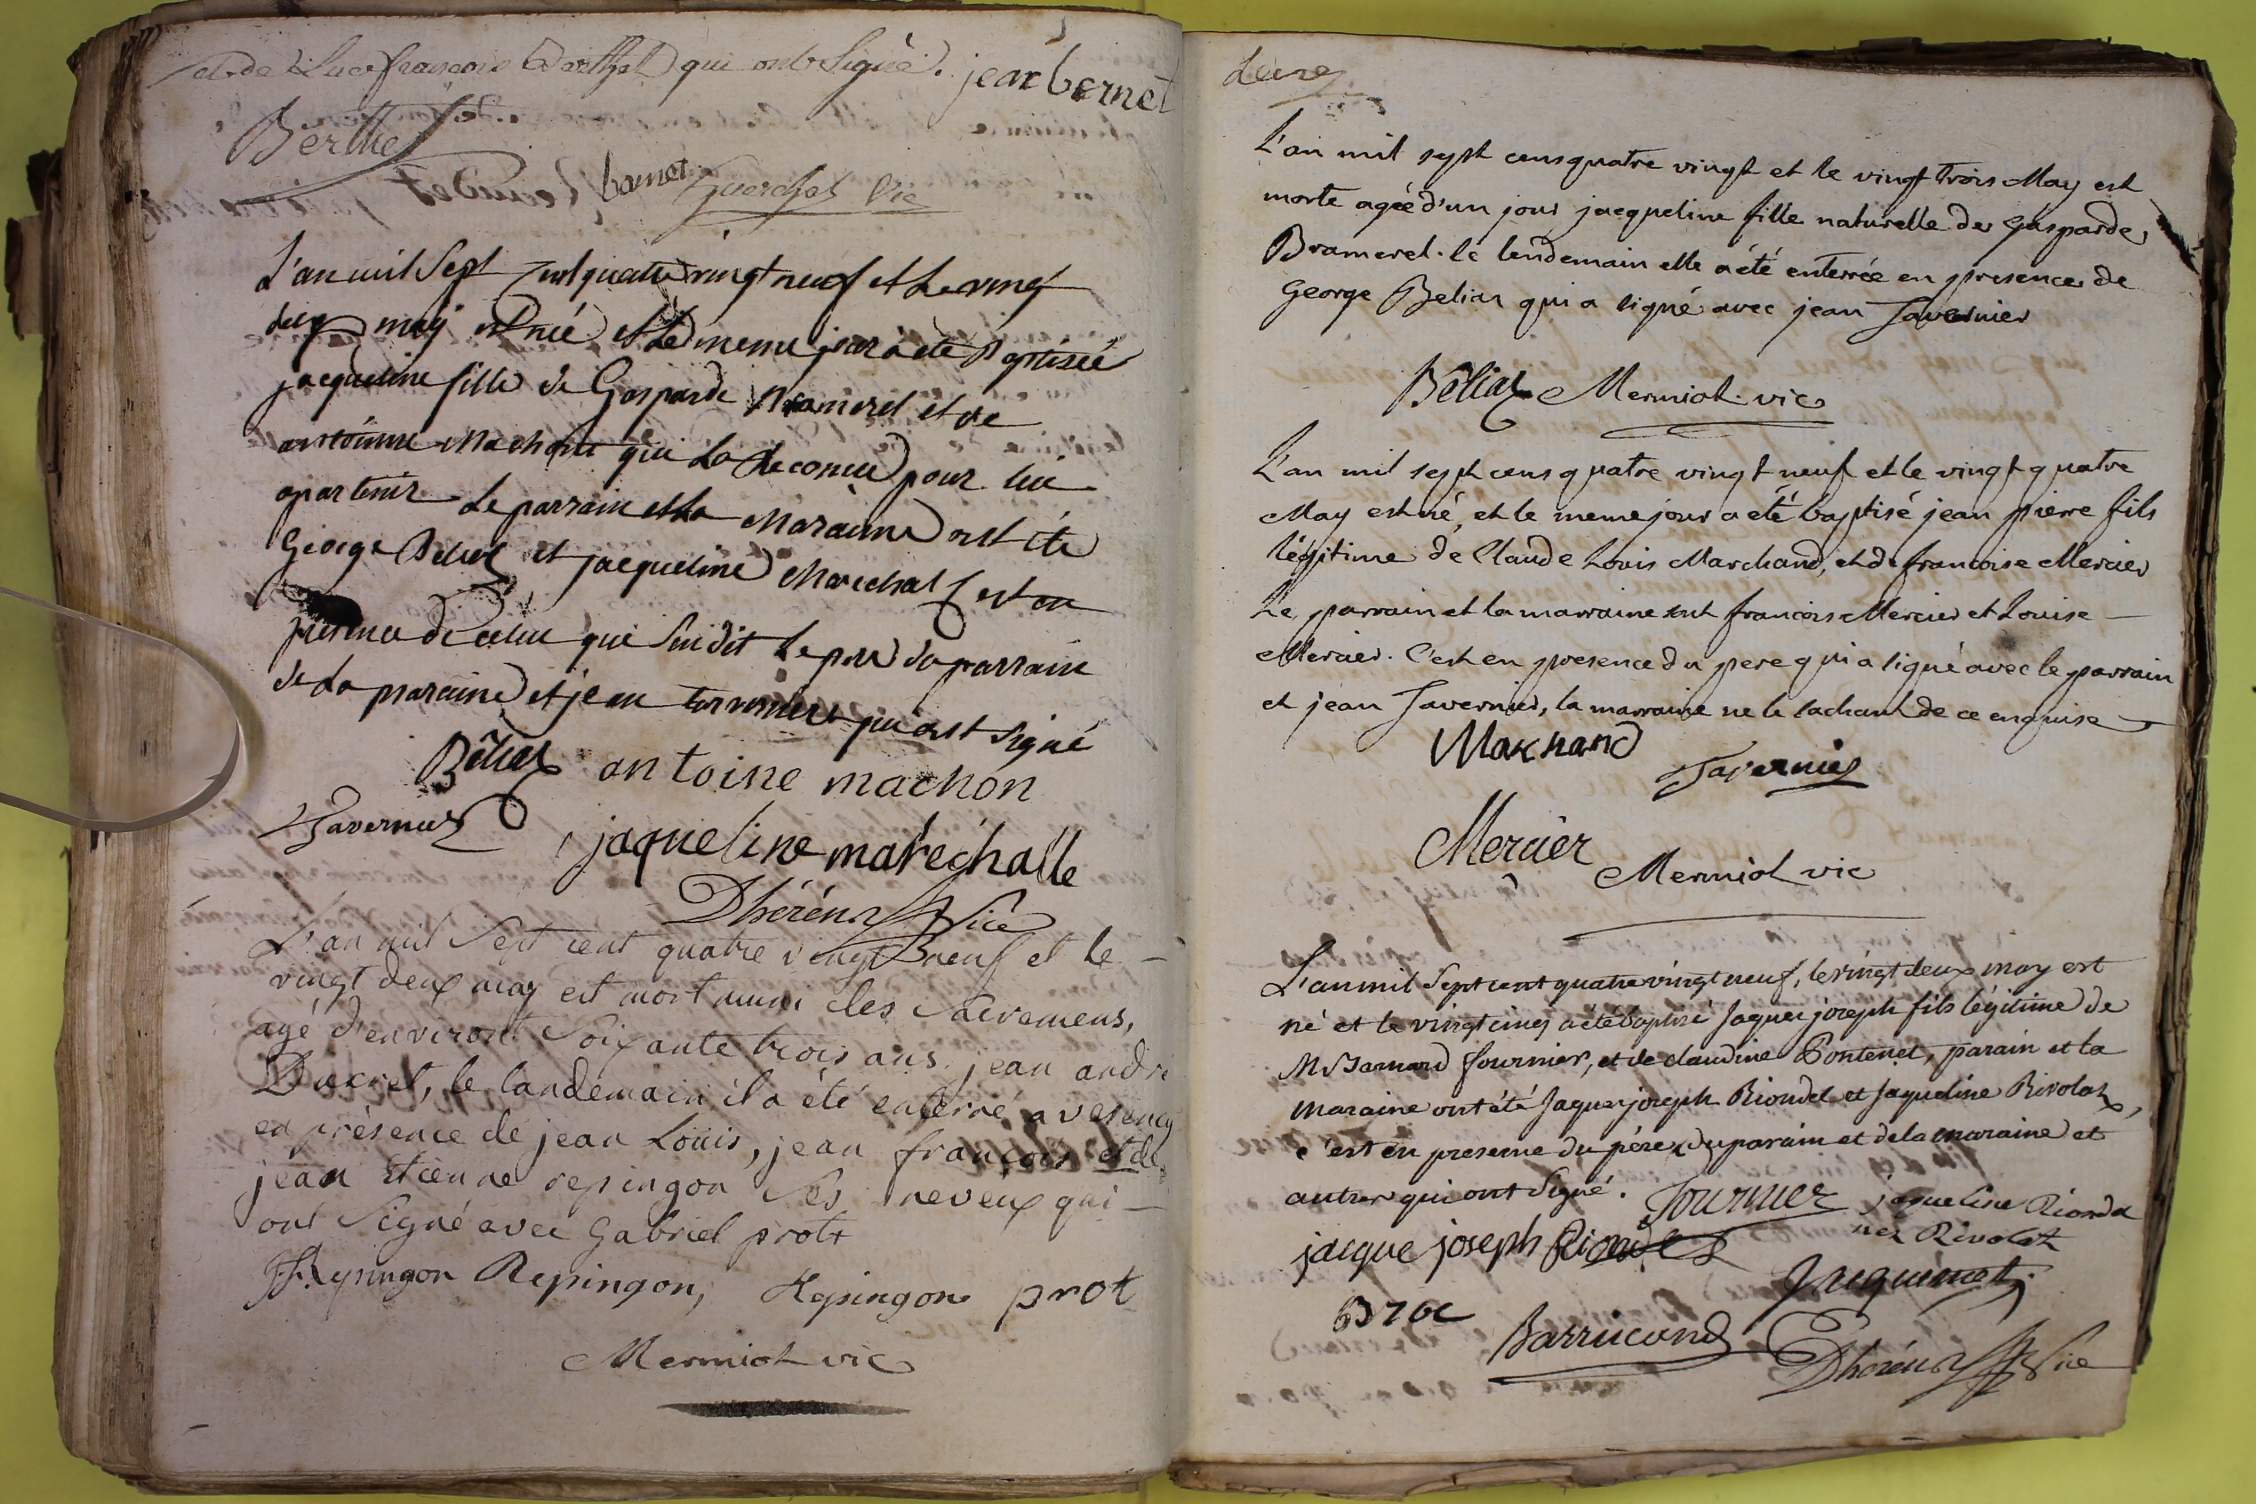 et de Luce françoise Berthet qui ont signé. jean bernet
Berthet
bernet Guerchet Vic
L'an mil Sept cent quatre vingt neuf et Le vingt
deux may est née et Le meme jour a été Baptisée
jacqueline fille de Gasparde Bramerel et de
antoinne Machon qui La Reconnu pour lui
apartenir Le parrain et La Maraine ont été
George Beliar et jacqueline Marechal C'est en
presence de celui qui se dit Le pere du parrain
de La maraine et jean tavernier qui ont signé
Béliar antoine machon
Tavernier
jaqueline maréchalle
Dhérens Vice
L'an mil Sept cent quatre vingt neuf et le
vingt deux may est mort muni des Sacremens,
agé d'environt Soixante trois ans jean andré
Ducret, le landemain il a été enterré a vesency
en présence de jean Louis, jean françois et de
jean Etienne repingon Ses neveux qui
ont Signé avec Gabriel prott
Repingon Repingon, Repingon prot
Mermiot vic
L'an mil sept cens quatre vingt et le vingt trois May est
morte agée d'un jour jacqueline fille naturelle de Gasparde
Bramerel. le lendemain elle a été enterrée en presence de
George Beliar qui a signé avec jean Tavernier
Béliar Mermiot vic
L'an mil sept cens quatre vingt neuf et le vingt quatre
May est né, et le meme jour a été baptisé jean pierre fils
légitime de Claude Louis Marchand, et de francoise Mercier
Le parrain et la marraine sont francois Mercier et Louise
Mercier. C'est en presence du pere qui a signé avec le parrain
et jean Tavernier, la marraine ne le sachant de ce enquise
Marchand
Tavernier
Mercier
Mermiot vic
L'an mil Sept cent quatre vingt neuf, le vingt deux may est
né et le vingt cinq a été baptisé Jaques joseph fils légitime de
Mr Bernard fournier, et de claudine Pontenet, parain et la
maraine ont été Jaques joseph Rioudet et Jaqueline Rivolat,
c'est en presence du père, du parain et de la maraine et
autres qui ont Signé. fournier jaqueline Rioudet
née Rivolat
jacque joseph Rioudet
Jacquinet
Broc
Barrucand
Dhérens Vice